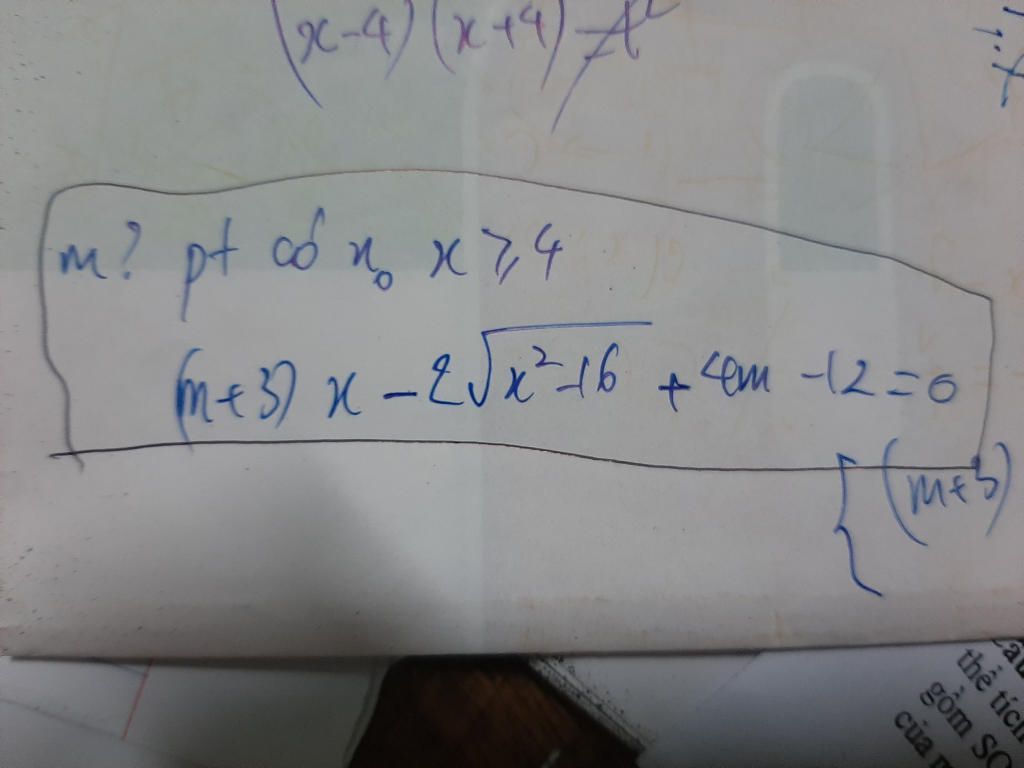 (x-4)(x+4)
m? pt có x₀ x ⩾ 4
(m+3) x - 2√(x²-16) + 4m - 12 = 0
{ (m+3)
thể tích
gồm SO
của